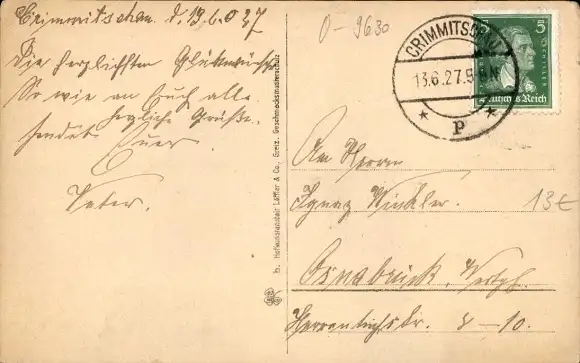 Crimmitschau. d. 13.6.27
Die herzlichsten Glückwünsche
So wie an Euch alle
herzliche Grüße.
sendet Euer
Vater.
0-9630
CRIMMITSCHAU
13.6.27.
* P *
5
Deutsches Reich
An Herrn
Ignaz Winkler.
13€
Osnabrück, Westph.
8-10.
h. Reliefkunstanstalt Löffler & Co., Greiz. Geschmacksmusterschutz